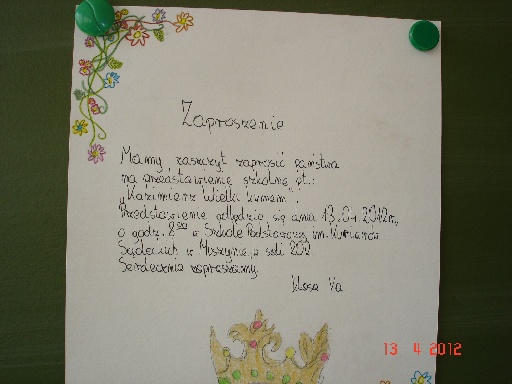 Zaproszenie
Mamy zaszczyt zaprosić państwa
na przedstawienie szkolne pt.:
"Kazimierz Wielki
Przedstawienie odbędzie się dnia 13.04.2012r.,
o godz. 8⁰⁰ w Szkole Podstawowej im. Wirianów
Sądeckich w Muszynie, w sali 200
Serdecznie zapraszamy.
Klasa Va
13 4 2012